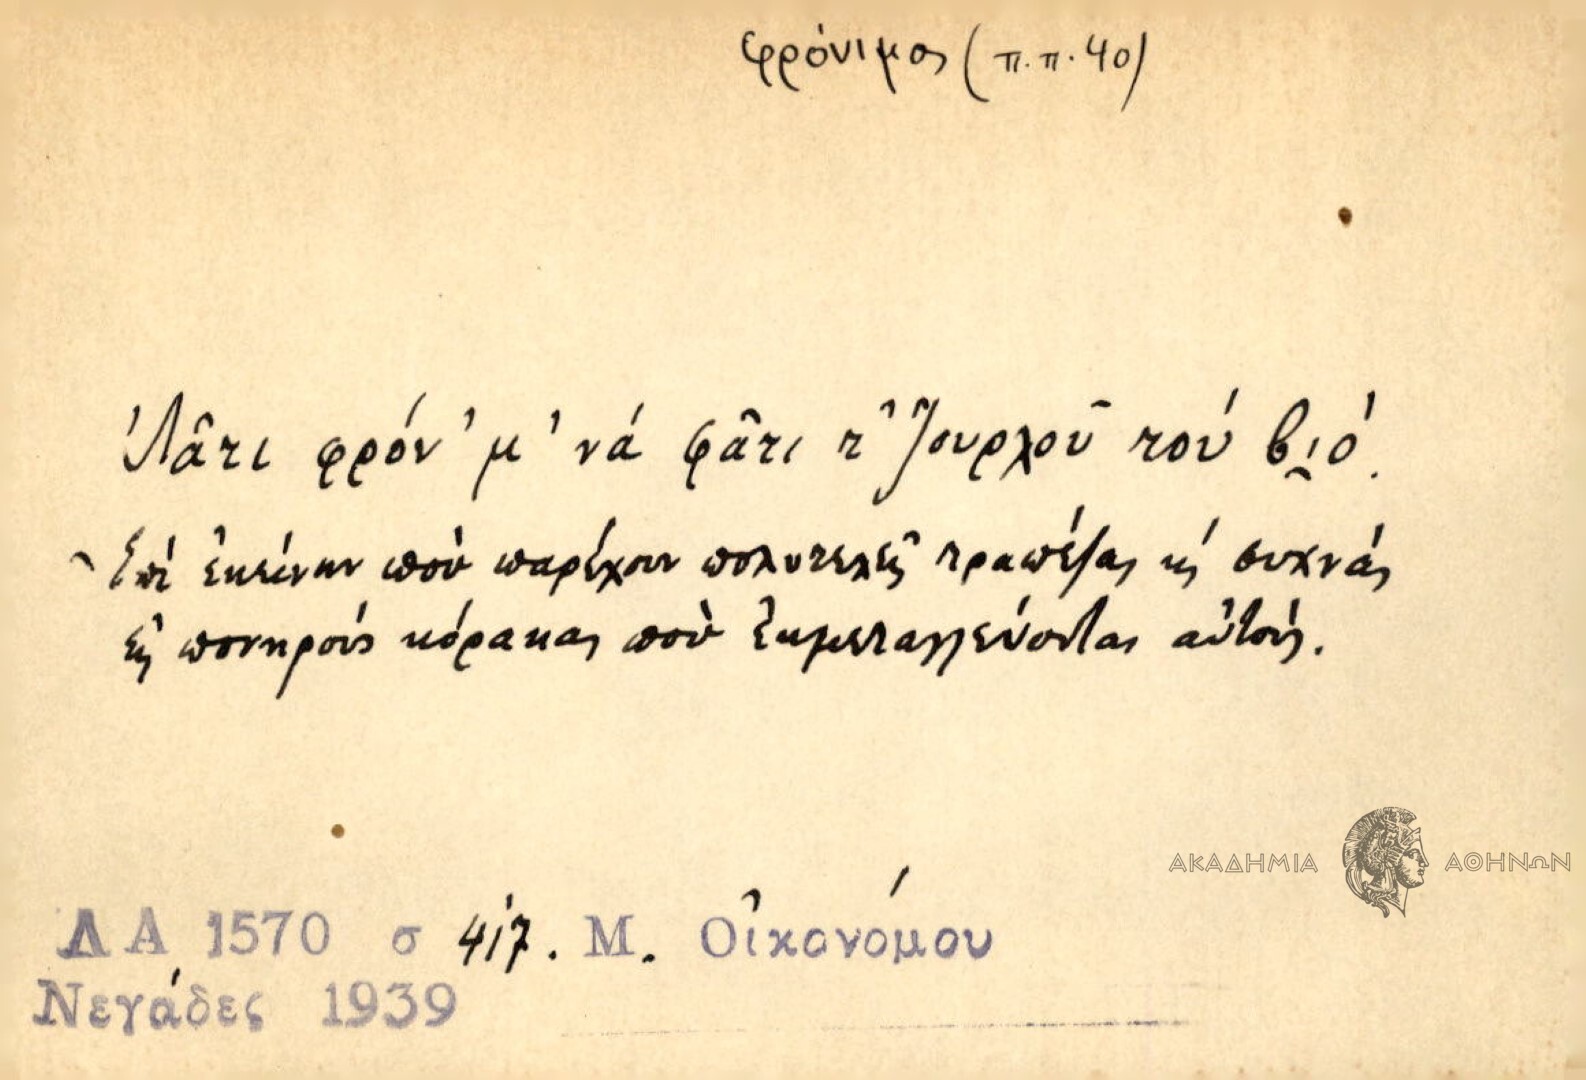 φρόνιμος (π.π. 40)
Ἰλᾶτι φρόν' μ' νά φᾶτι τ' ζουρλοῦ τού βιό.
Ἐπί ἐκείνων ποὺ παρέχουν πολυτελεῖς τραπέζας κ' συχνάς
εἰς πονηρούς κόρακας ποὺ ἐκμεταλλεύονται αὐτούς.
ΑΚΑΔΗΜΙΑ ΑΘΗΝΩΝ
ΛΑ 1570 σ 417. Μ. Οἰκονόμου
Νεγάδες 1939